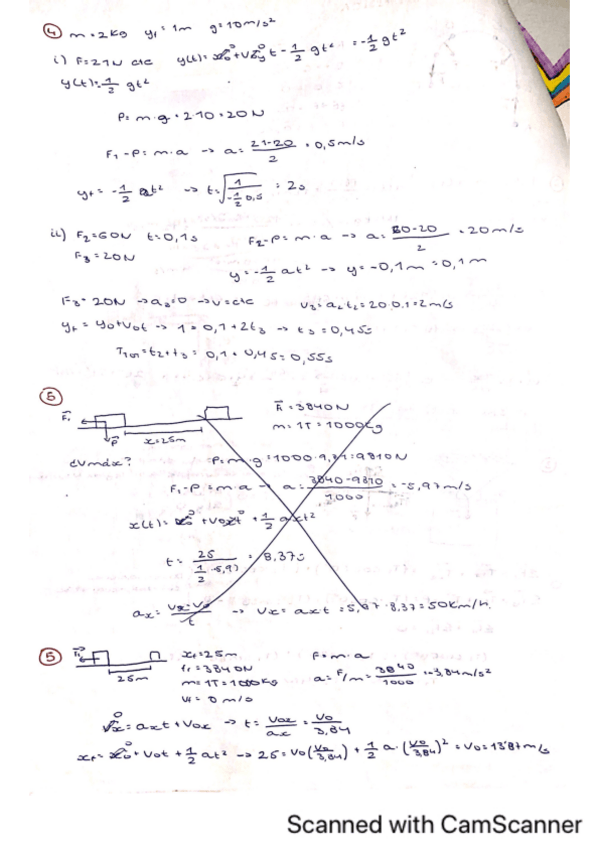 ④ m=2kg yf=1m g=10m/s²
i) F=21N cte y(t)=y0+V0y t-1/2 gt² =-1/2 gt²
y(t)=1/2 gt²
P=m·g=2·10=20N
F1-P=m·a → a=21-20/2=0,5m/s
yf=-1/2 at² → t=√1/-1/2 0,5 = 2s
ii) F2=60N t=0,1s F2-P=m·a → a=60-20/2=20m/s
F3=20N
y=-1/2 at² → y=-0,1m=0,1m
F3=20N → a3=0 → v=cte v2=a2t2=20·0,1=2m/s
yf=y0+v0t → 1=0,1+2t3 → t3=0,45s
TTOT=t2+t3=0,1+0,45=0,55s
⑤ F1=3840N
m=1T=1000kg
F1 P x=25m
¿Vmáx? P=m·g=1000·9,81=9810N
F1-P=m·a → a=3840-9810/1000=-5,97m/s
x(t)=x0+v0xt+1/2 axt²
t=25/1/2·5,97=8,37s
ax=vx-v0/t → vx=axt=5,97·8,37=50km/h.
⑤ F1 25m xf=25m F=m·a
fr=3840N a=F/m=3840/1000=-3,84m/s²
m=1T=1000kg
vf=0m/s
vx=axt+v0x → t=v0x/ax=v0/3,84
xf=x0+v0t+1/2 at² → 25=v0(v0/3,84)+1/2 a·(v0/3,84)²=v0=13'87m/s
Scanned with CamScanner